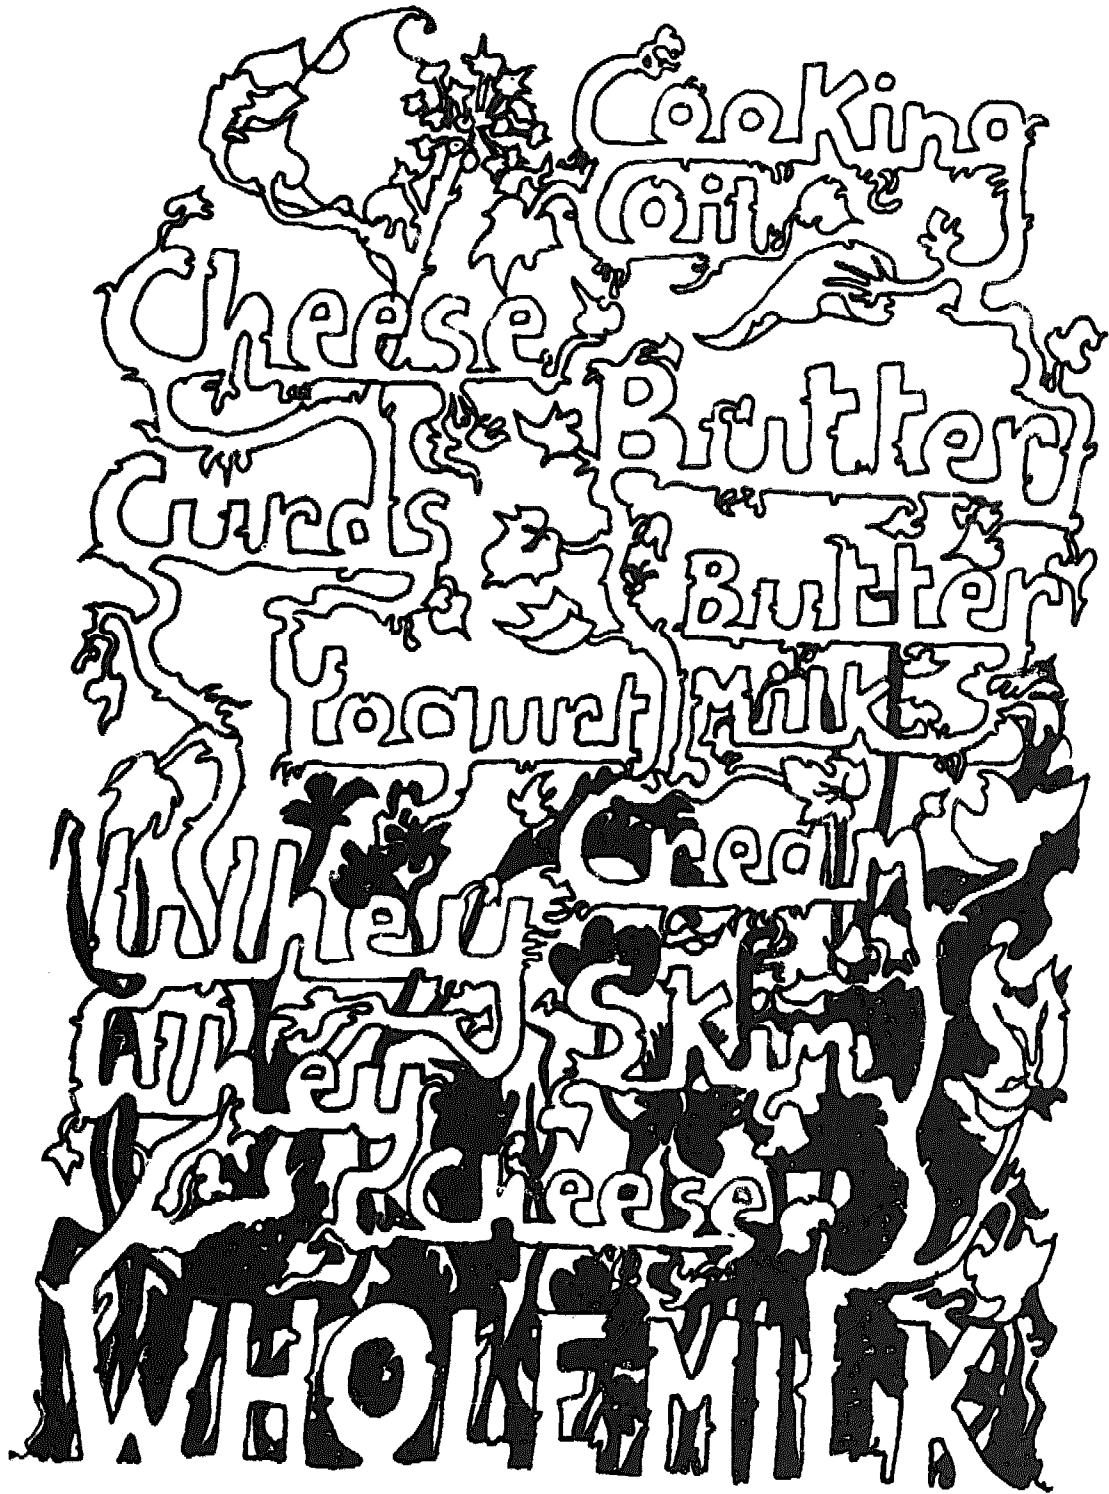 Cooking
Oil
Cheese
Butter
Curds
Butter
Milk
Yogurt
Cream
Whey
Skim
Whey
Cheese
WHOLE MILK